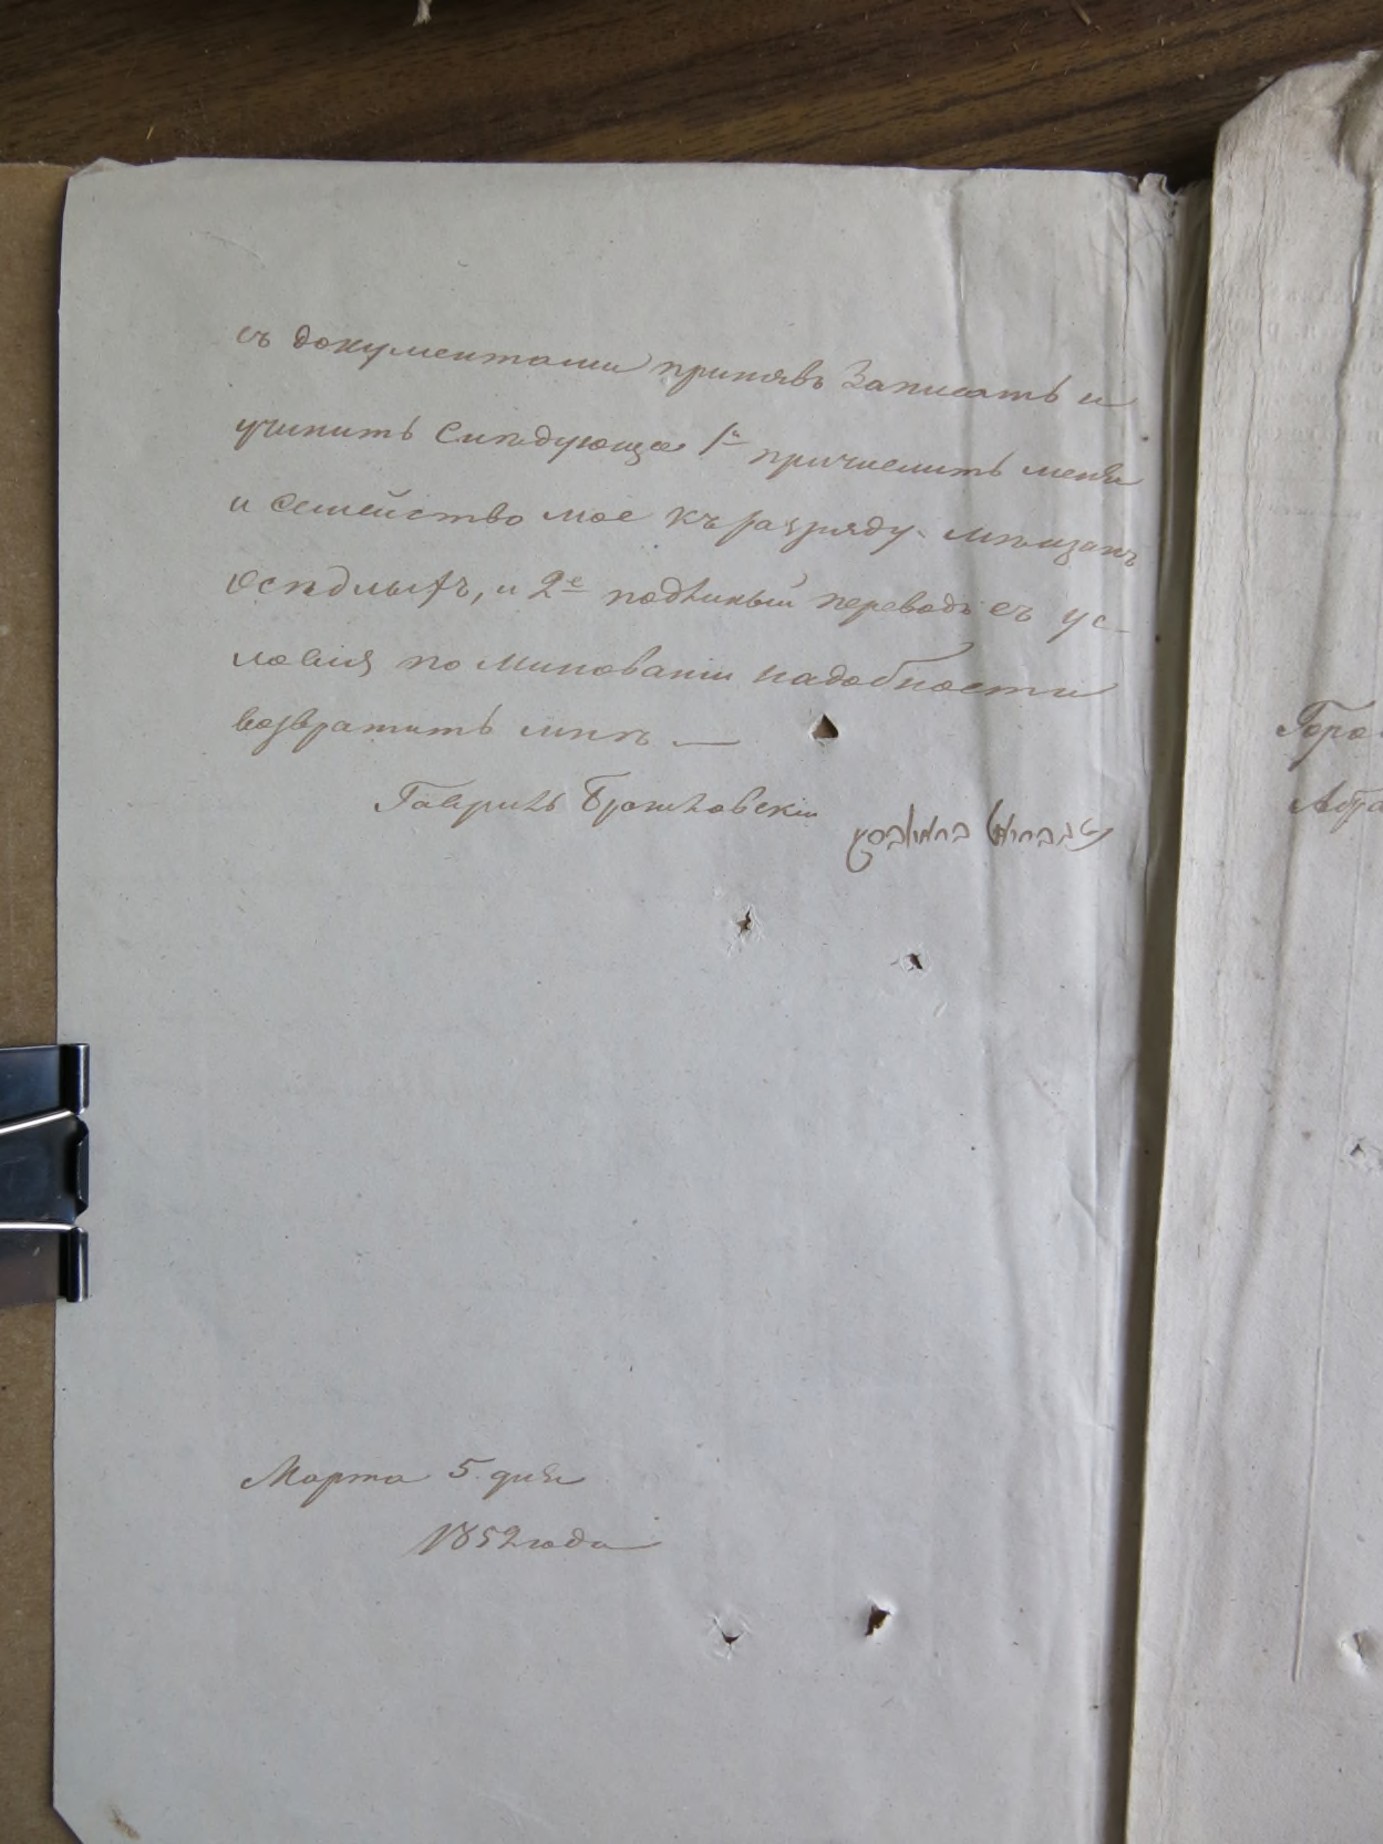 съ документами принявъ записать и
учинить следующее 1е причислить меня
и семейство мое къ разряду мѣщанъ
осѣдлыхъ, и 2е подлиный переводъ съ ус-
ловия по минованіи надобности
возвратить мнѣ —
Гаврилъ
Марта 5 дня
1852 года
Горо
Абра